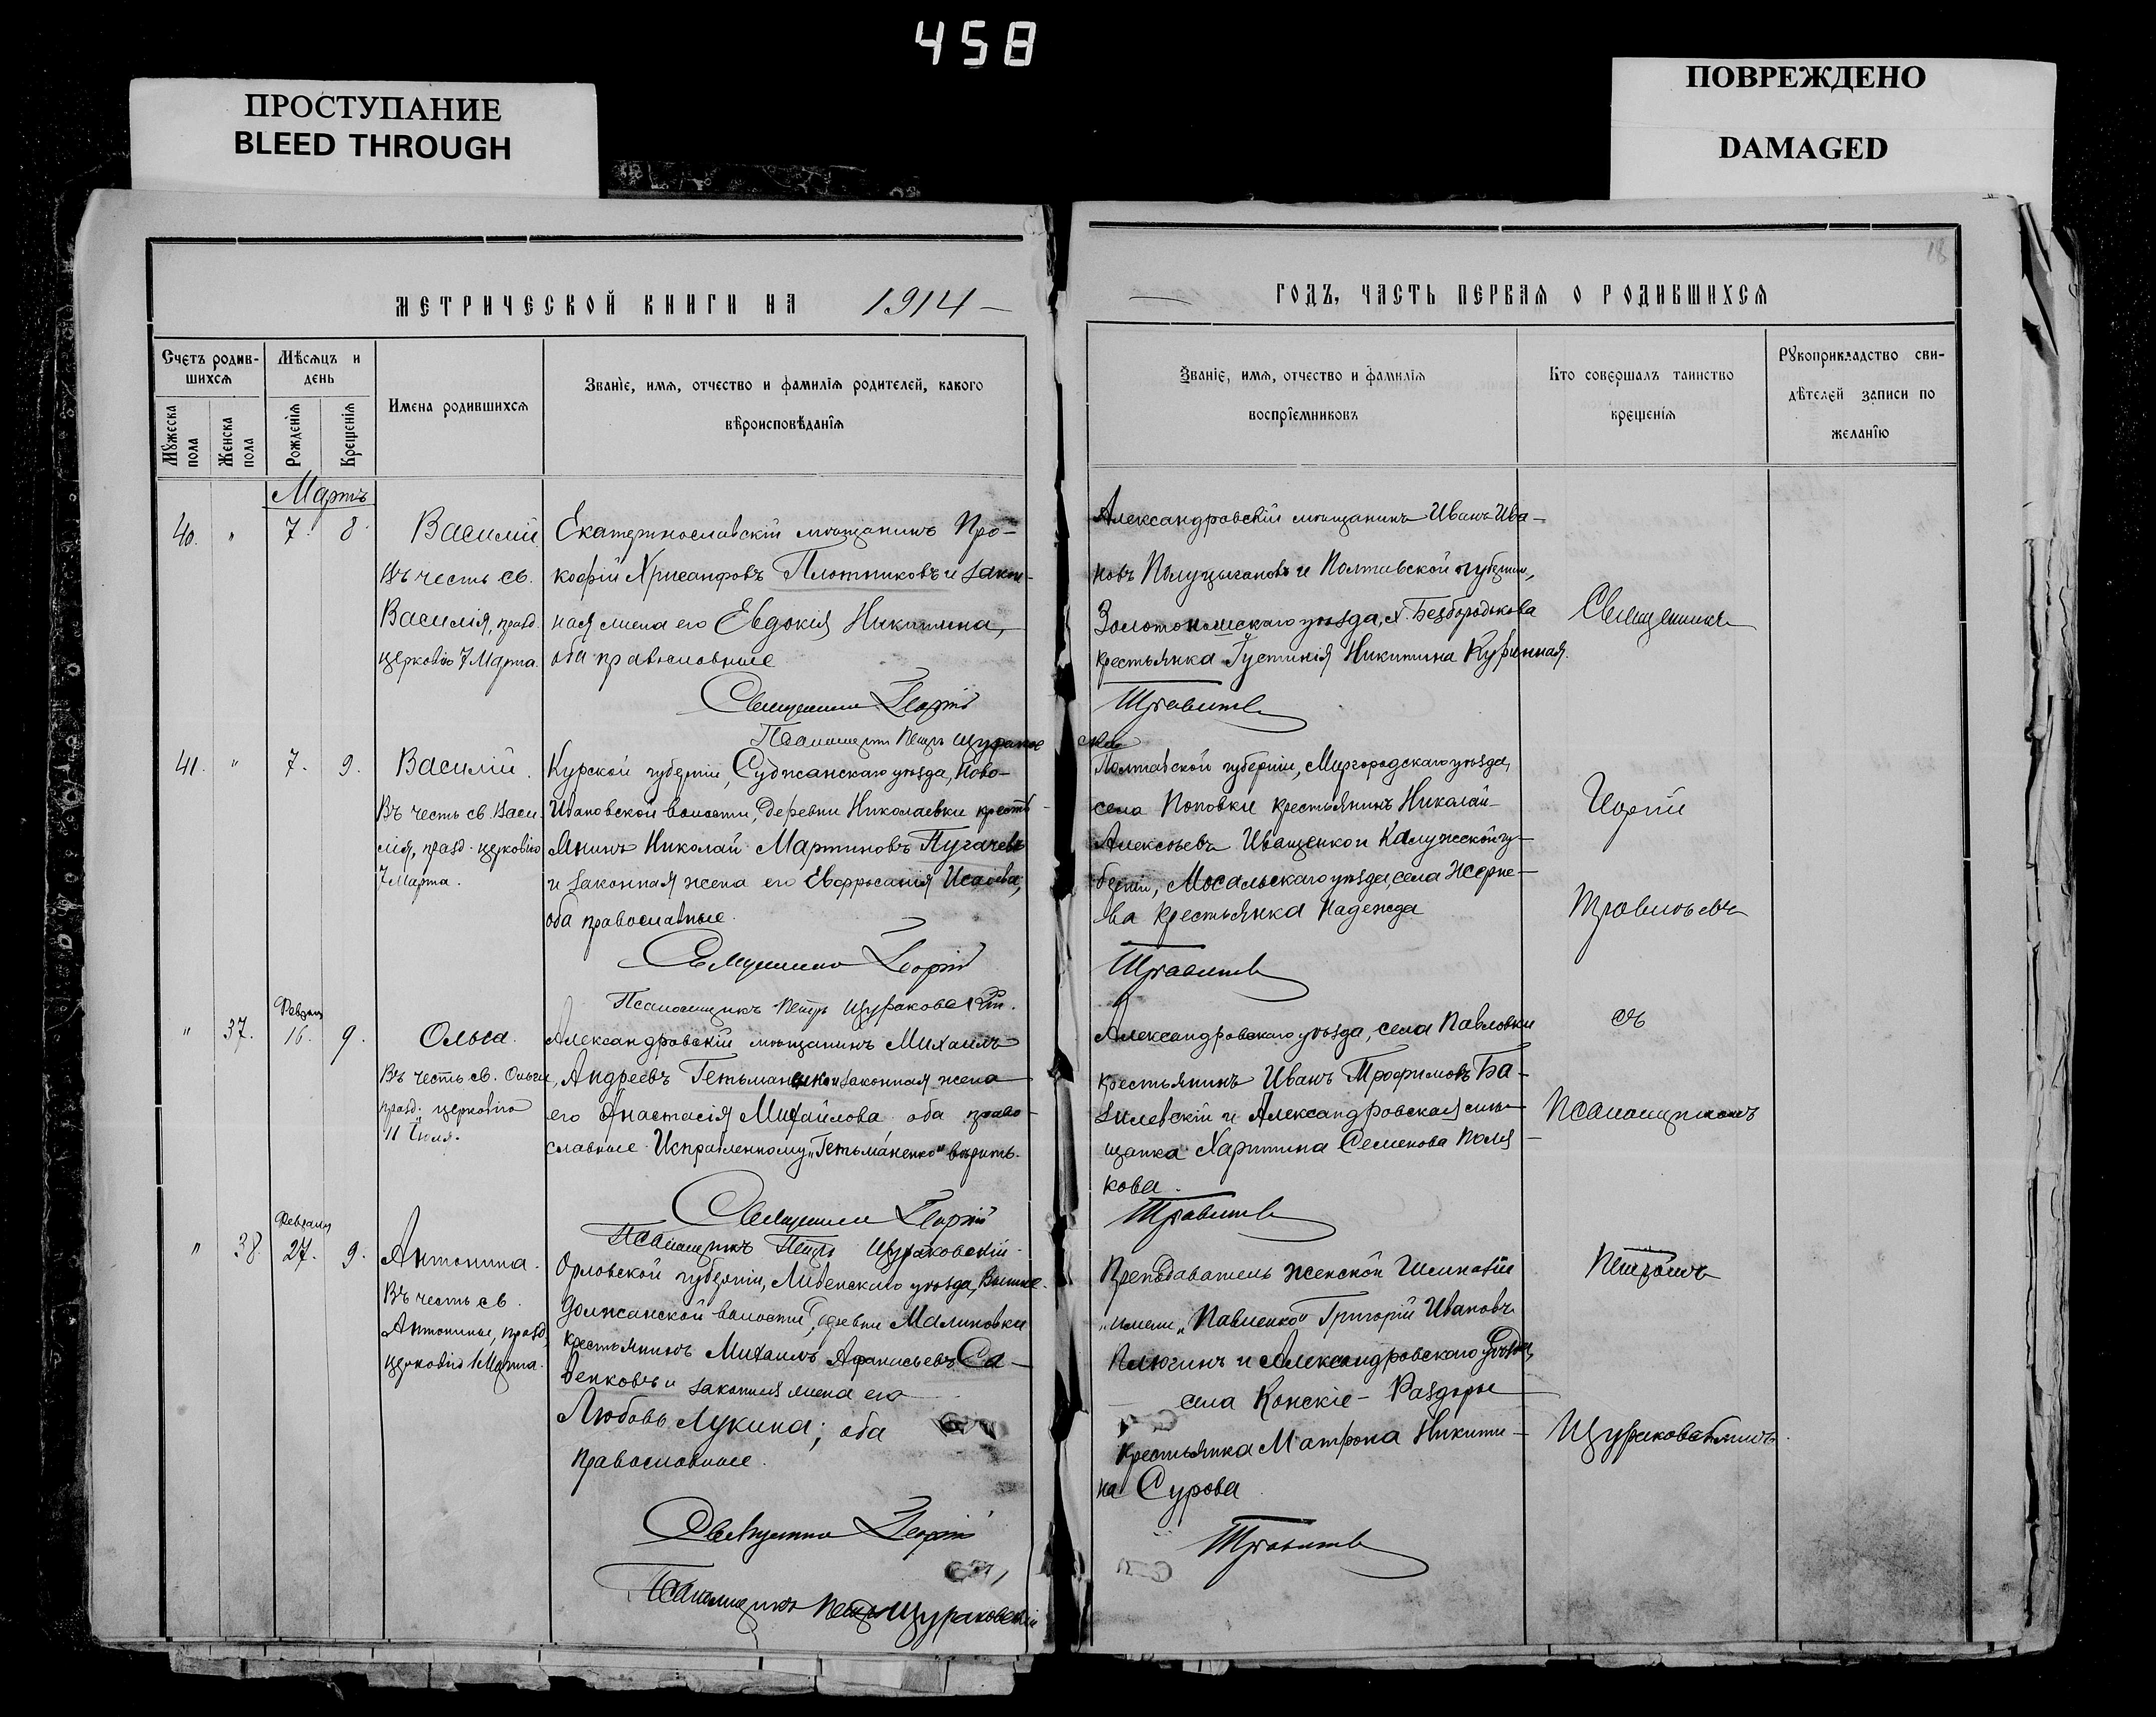 458
ПРОСТУПАНИЕ
BLEED THROUGH
ПОВРЕЖДЕНО
DAMAGED
18
МЕТРИЧЕСКОЙ КНИГИ НА 1914
Счетъ родив-
шихся
Мѣсяцъ и
день
Мужеска пола
Женска пола
Рожденія
Крещенія
Имена родившихся
Званіе, имя, отчество и фамилія родителей, какого
вѣроисповѣданія
Мартъ
40. " 7. 8.
Василій
Въ честь св.
Василія, празд.
церковію 7 Марта.
Екатеринославскій мѣщанинъ Про-
кофій Хрисанфовъ Плотниковъ и закон-
ная жена его Евдокія Никитина,
оба православные
Священникъ Георгій
Псаломщикъ Петръ Щураков
41. " 7. 9.
Василій.
Въ честь св. Васи-
лія, празд. церковію
7 Марта.
Курской губерніи, Суджанскаго уѣзда, Ново-
Ивановской волости, деревни Николаевки кресть-
янинъ Николай Мартиновъ Пугачевъ
и законная жена его Евфросинія Исаева,
оба православные.
Священникъ Георгій
Псаломщикъ Петръ Щураковскій.
" 37. Февраля 16. 9.
Ольга.
Въ честь св. Ольги,
празд. церковію
11 Іюля.
Александровскій мѣщанинъ Михаилъ
Андреевъ Гетьманенко и законная жена
его Анастасія Михайлова оба право-
славные. Исправленному "Гетьманенко" вѣрить.
Священникъ Георгій
Псаломщикъ Петръ Щураковскій.
" 38. Февраля 27. 9.
Антонина.
Въ честь св.
Антонины, празд.
церковію 1 Марта.
Орловской губерніи, Ливенскаго уѣзда, Вышне-
Должанской волости, деревни Малиновки
крестьянинъ Михаилъ Афанасьевъ Са-
венковъ и законная жена его
Любовь Лукина; оба
православные.
Священникъ Георгій
Псаломщикъ Петръ Щураковскій
ГОДЪ, ЧАСТЬ ПЕРВАЯ О РОДИВШИХСЯ
Званіе, имя, отчество и фамилія
воспріемниковъ
Кто совершалъ таинство
крещенія
Рукоприкладство сви-
дѣтелей записи по
желанію
Александровскій мѣщанинъ Иванъ Ива-
новъ Полуцыгановъ и Полтавской губерніи,
Золотоношскаго уѣзда, х. Безбородькова
крестьянка Іустинія Никитина Куринная.
Травинъ
скій
Полтавской губерніи, Миргородскаго уѣзда,
села Поповки крестьянинъ Николай
Алексѣевъ Иващенко и Калужской гу-
берніи, Мосальскаго уѣзда, села Жерне-
ва крестьянка Надежда
Александровскаго уѣзда, села Павловки
крестьянинъ Иванъ Трофимовъ Ба-
зилевскій и Александровская мѣ-
щанка Харитина Семенова Поля-
кова.
Преподаватель женской Гимназіи
имени "Павленко" Григорій Ивановъ
Плюгинъ и Александровскаго уѣзда,
села Конскіе-Раздоры
крестьянка Матрона Никити-
на Сурова.
Священникъ
Георгій
съ
Псаломщикомъ
Петромъ
Щураковскимъ.